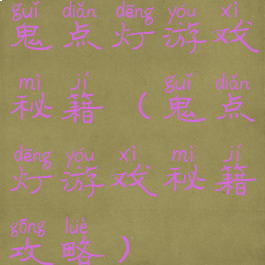 guǐ diǎn dēng yóu xì
鬼点灯游戏
mì jí guǐ diǎn
秘籍(鬼点
dēng yóu xì mì jí
灯游戏秘籍
gōng lüè
攻略)